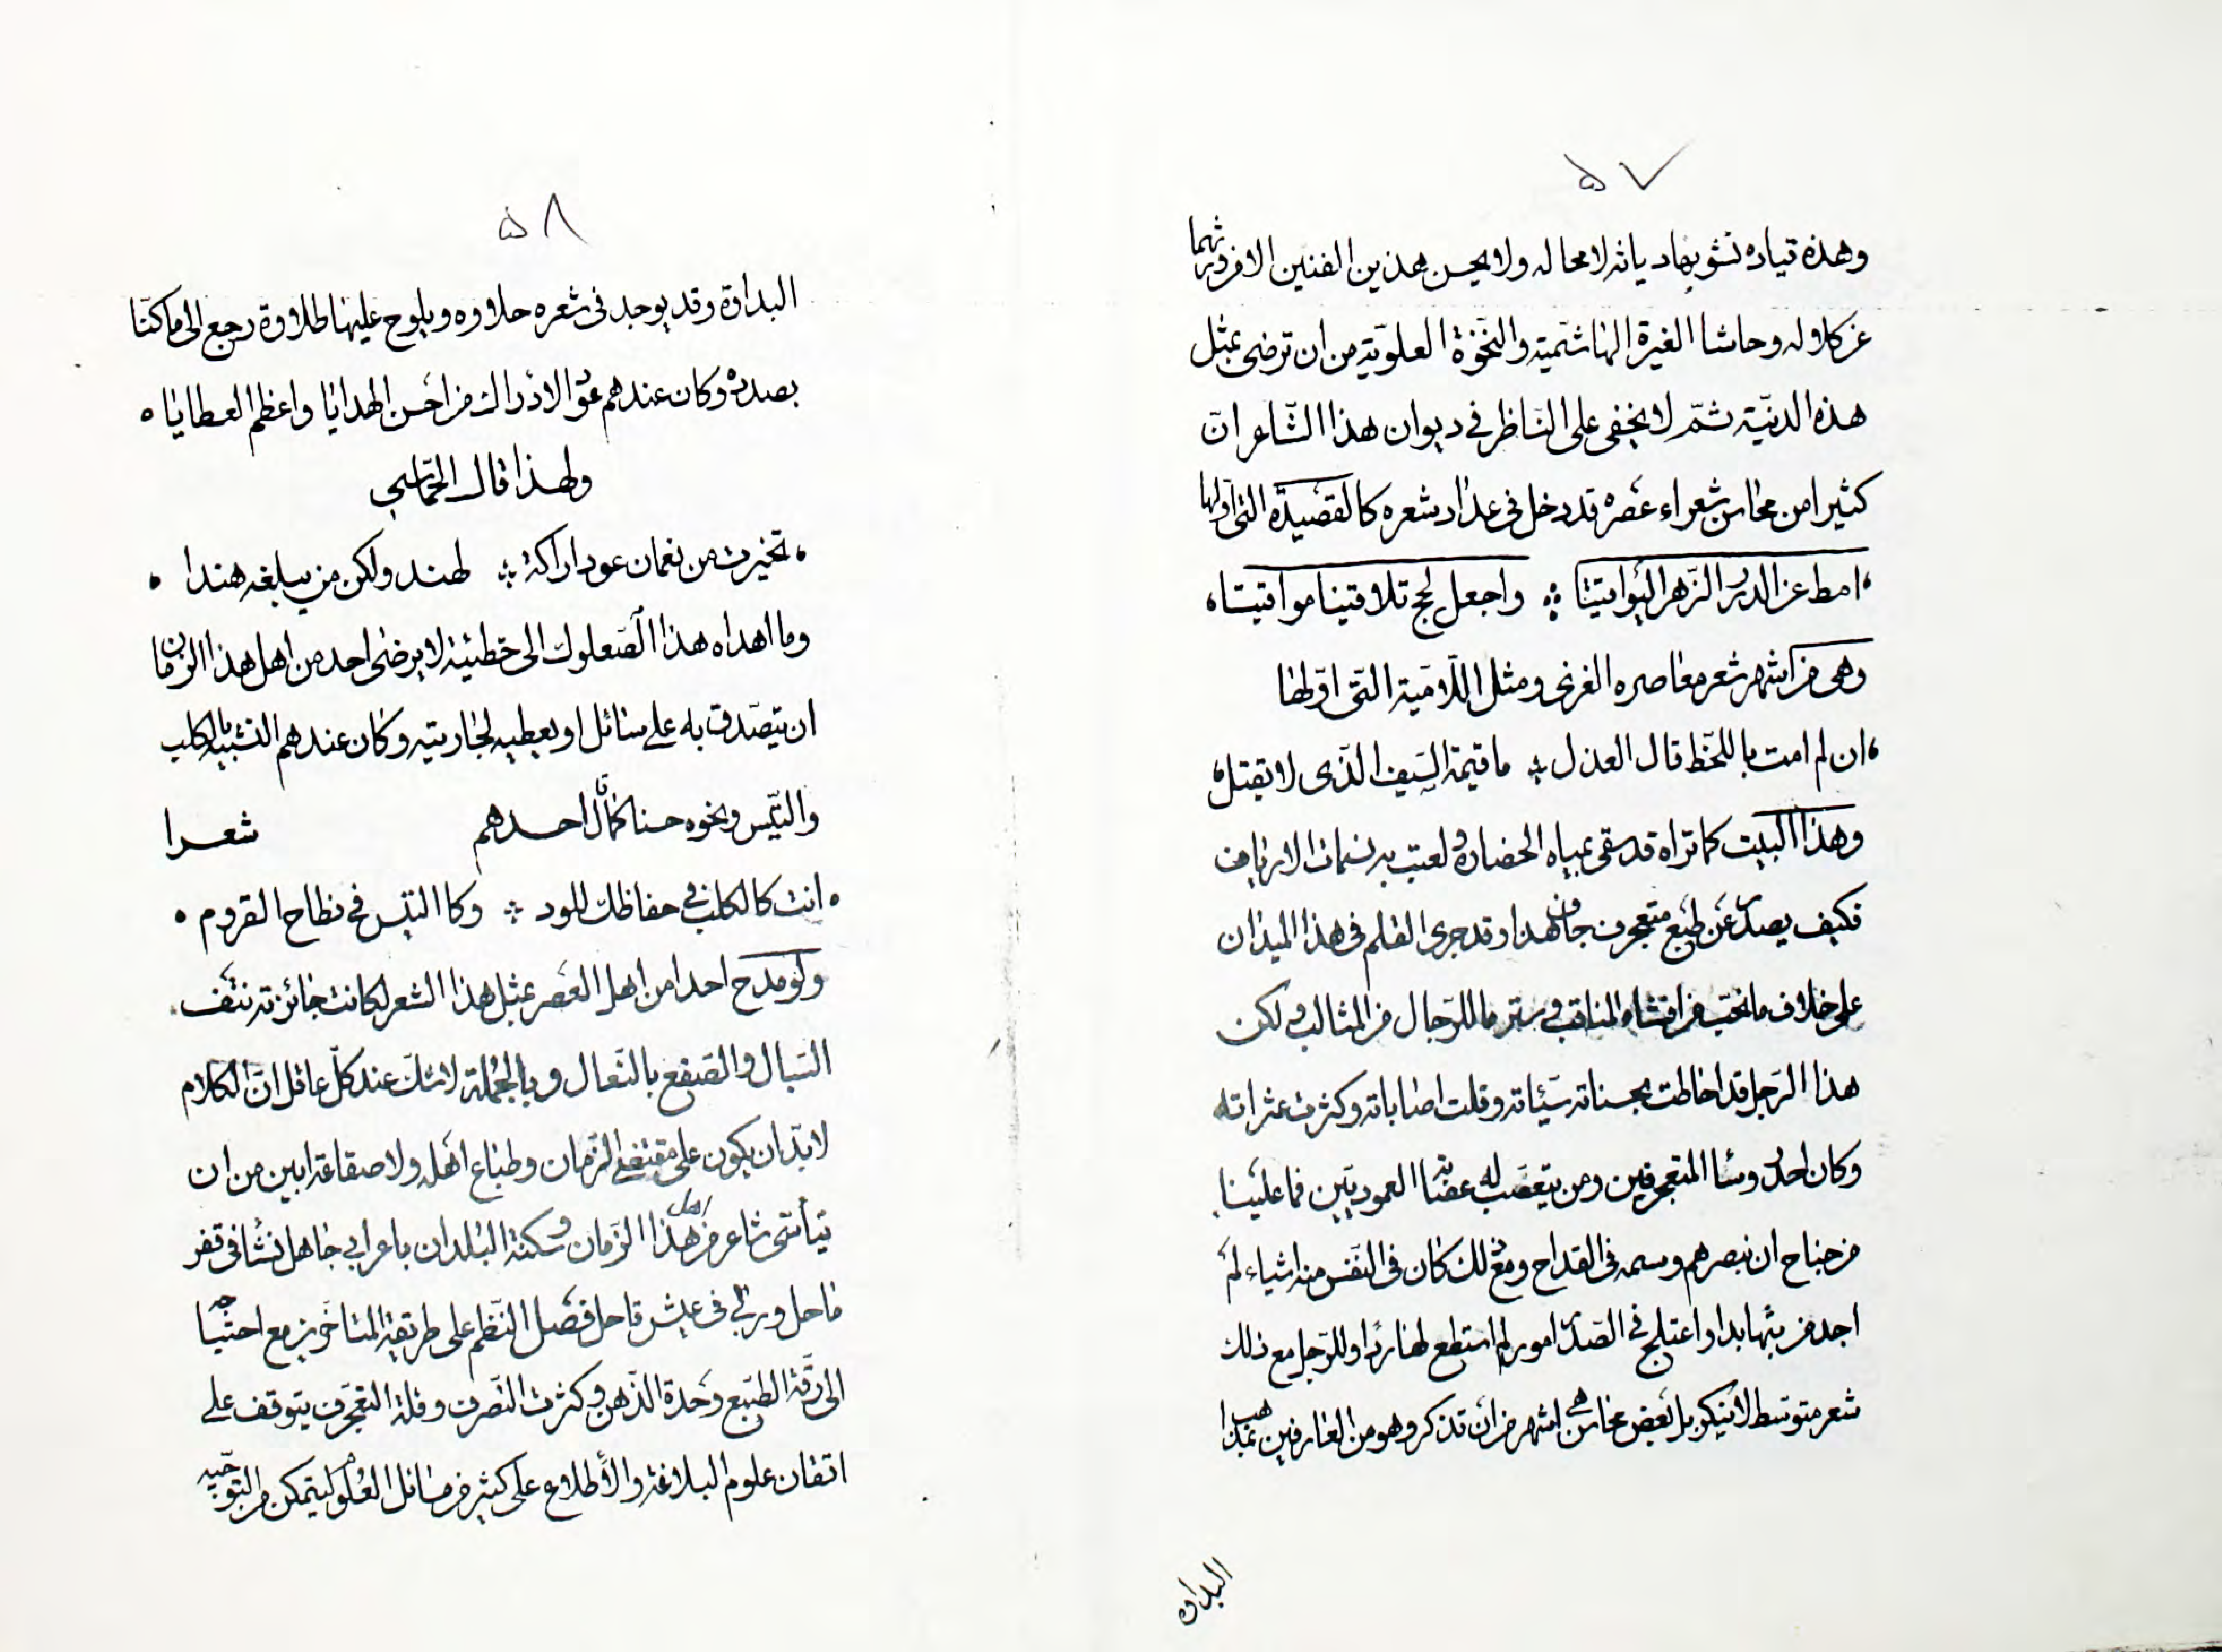 ۵۷
وهذه قياده تشوبها ديانه لا محاله ولا يحسن هذين الفنين الا فرد ورثهما
عن كلاوله وحاشا الغيرة الهاشمية والنخوة العلوية من ان ترضى بمثل
هذه الدنيّة ثمّ لا يخفى على الناظر في ديوان هذا الشاعر انّ
كثيرا من محاسن شعراء عصره قد دخل في عداد شعره كالقصيدة التي اولها
امط عن الدرر الزهر اليواقيتا واجعل لحج تلاقينا مواقيتا
وهى من اشهر شعر معاصره الغزى ومثل اللّامية التى اوّلها
ان لم امت باللحظ قال العذل ما قيمة السيف الذى لا يقتل
وهذا البيت كما تراه قد سقى بمياه الحضارة ولعبت به نسمات الارياف
فكيف يصدر عن طبع متعجرف جاف هذا وقد جرى القلم فى هذا الميدان
على خلاف ما نحب من افشاء المناقب وستر ما للرجال من المثالب ولكن
هذا الرجل قد احاطت بحسناته سيّئاته وقلت اصاباته وكثرت عثراته
وكان احد رؤسا المتعجرفين ومن يتعصب له عصابة العموديين فما علينا
من جناح ان نبصرهم وسمه فى القداح ومع ذلك كان فى النفس منه اشياء لم
اجد من بثها بدا واعتلج فى الصدر امور لم استطع لها ردا وللرجل مع ذلك
شعر متوسط لا ينكر بل بعض محاسنه اشهر من ان تذكر وهو من العارفين بمذاهب
البداوة
۵۸
البداوة وقد يوجد فى شعره حلاوه ويلوح عليها طلاوة رجع الى ما كنّا
بصدده وكان عندهم عود الاراك من احسن الهدايا واعظم العطايا
ولهذا قال الحماسي
تخيرت من نعمان عود اراكة لهند ولكن من يبلغه هندا
وما اهداه هذا الصعلوك الى خطيبته لا يرضى احد من اهل هذا الزمان
ان يتصدق به على سائل او يعطيه لجاريته وكان عندهم التشبيه بالكلب
والتيس ونحوه حسنا كما قال احدهم شعرا
انت كالكلب في حفاظك للود وكا التيس في نطاح القروم
ولو مدح احدا من اهل العصر بمثل هذا الشعر لكانت جائزته نتف
السبال والصفع بالنعال وبالجملة لا شك عند كلّ عاقل انّ الكلام
لا بدّ ان يكون على مقتضى الزمان وطباع اهله ولا صقاعة ابين من ان
يتأسّى شاعر من اهل هذا الزمان وسكنة البلدان باعرابي جاهل نشا فى قفر
ماحل وربي فى عيش قاحل فصل النّظم على طريقة المتاخرين مع احتياجه
الى رقة الطبع وحدة الذهن وكثرت التصرف وقلة التعجرف يتوقف على
اتقان علوم البلاغة والأطلاع على كثير من مسائل العلوم ليتمكن من التوجيه